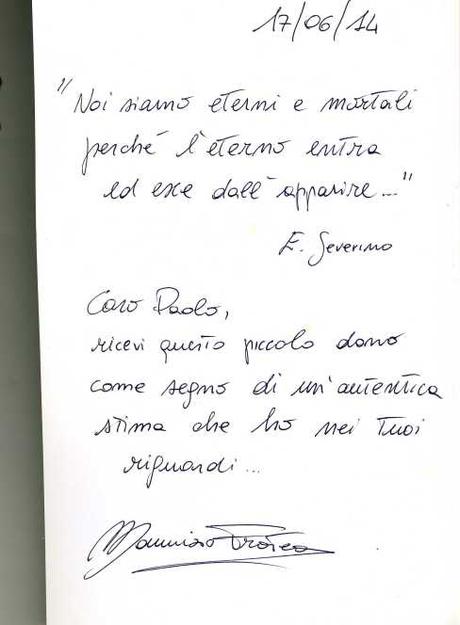 17/06/14
"Noi siamo eterni e mortali
perché l'eterno entra
ed esce dall'apparire..."
E. Severino
Caro Paolo,
ricevi questo piccolo dono
come segno di un'autentica
stima che ho nei Tuoi
riguardi...
Maurizio